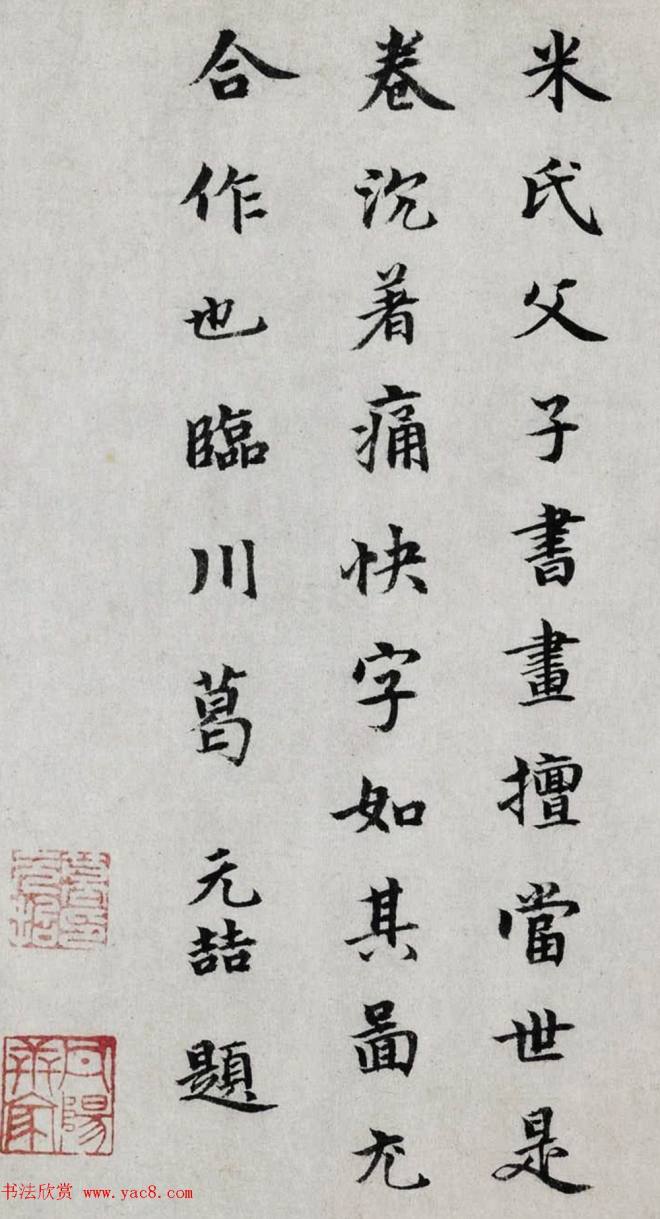 米氏父子書畫擅當世是
卷沉著痛快字如其畐尤
合作也臨川葛元喆題
书法欣赏 www.yac8.com